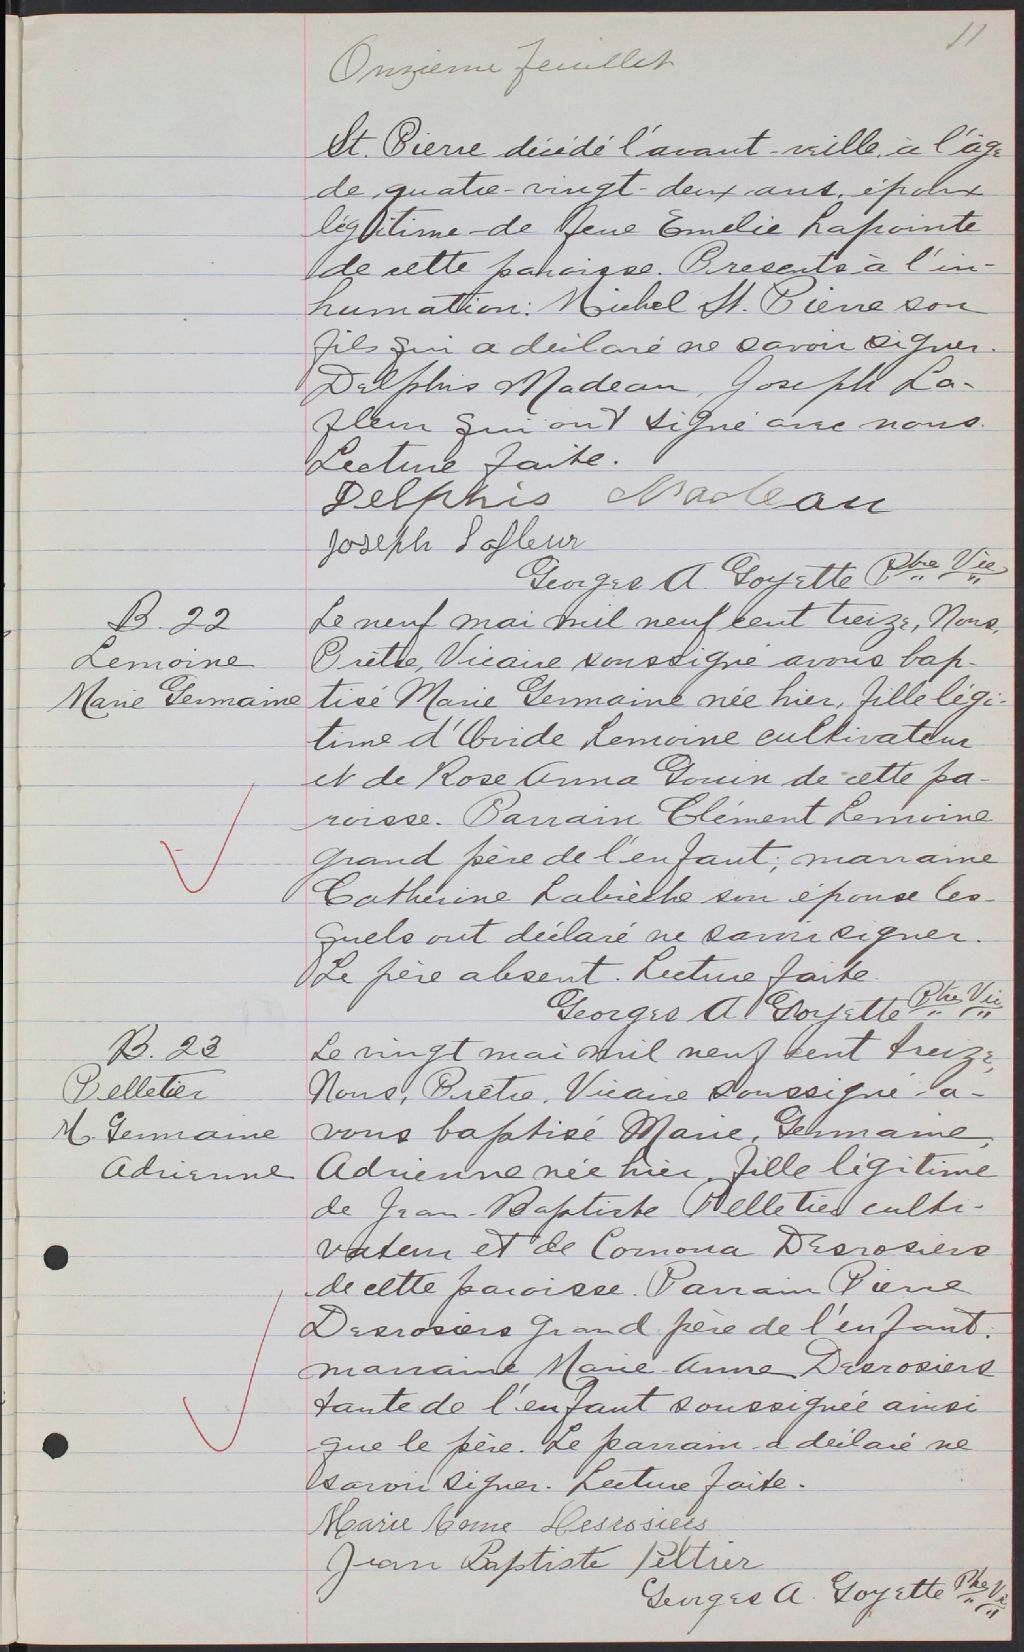 11
Onzieme feuillet
St. Pierre décédé l'avant-veille, à l'âge
de quatre-vingt-deux ans, époux
légitime de feue Emelie Lapointe
de cette paroisse. Presents à l'in-
humation: Michel St. Pierre son
fils qui a déclaré ne savoir signer.
Delphis Nadeau, Joseph La-
fleur qui ont signé avec nous.
Lecture faite.
Delphis Nadeau
Joseph Lafleur
Georges A. Goyette Ptre Vic
B. 22
Lemoine
Marie Germaine
Le neuf mai mil neuf cent treize, Nous,
Prêtre, Vicaire soussigné avons bap-
tisé Marie Germaine née hier, fille légi-
time d'Ovide Lemoine cultivateur
et de Rose Anna Gouin de cette pa-
roisse. Parrain Clément Lemoine
grand père de l'enfant; marraine
Catherine Labrèche son épouse les-
quels ont déclaré ne savoir signer.
Le père absent. Lecture faite.
Georges A Goyette Ptre Vic
B. 23
Pelletier
M. Germaine
Adrienne
Le vingt mai mil neuf cent treize,
Nous, Prêtre, Vicaire soussigné a-
vons baptisé Marie, Germaine,
Adrienne née hier, fille légitime
de Jean-Baptiste Pelletier culti-
vateur et de Cornona Desrosiers
de cette paroisse. Parrain Pierre
Desrosiers grand père de l'enfant.
marraine Marie-Anne Desrosiers
tante de l'enfant soussignée ainsi
que le père. Le parrain a déclaré ne
savoir signer. Lecture faite.
Marie Anne Desrosiers
Jean Baptiste Peltier
Georges A. Goyette Ptre Vic